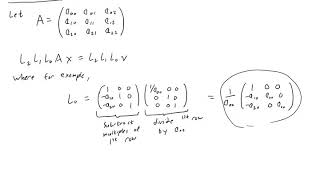 Let A = ( a₀₀ a₀₁ a₀₂
a₁₀ a₁₁ a₁₂
a₂₀ a₂₁ a₂₂ )
L₂ L₁ L₀ A x = L₂ L₁ L₀ v
where for example,
L₀ = ( 1 0 0
-a₁₀ 1 0
-a₂₀ 0 1 ) ( 1/a₀₀ 0 0
0 1 0
0 0 1 ) = 1/a₀₀ ( 1 0 0
-a₁₀ a₀₀ 0
-a₂₀ 0 a₀₀ )
subtract multiples of 1st row
divide 1st row by a₀₀